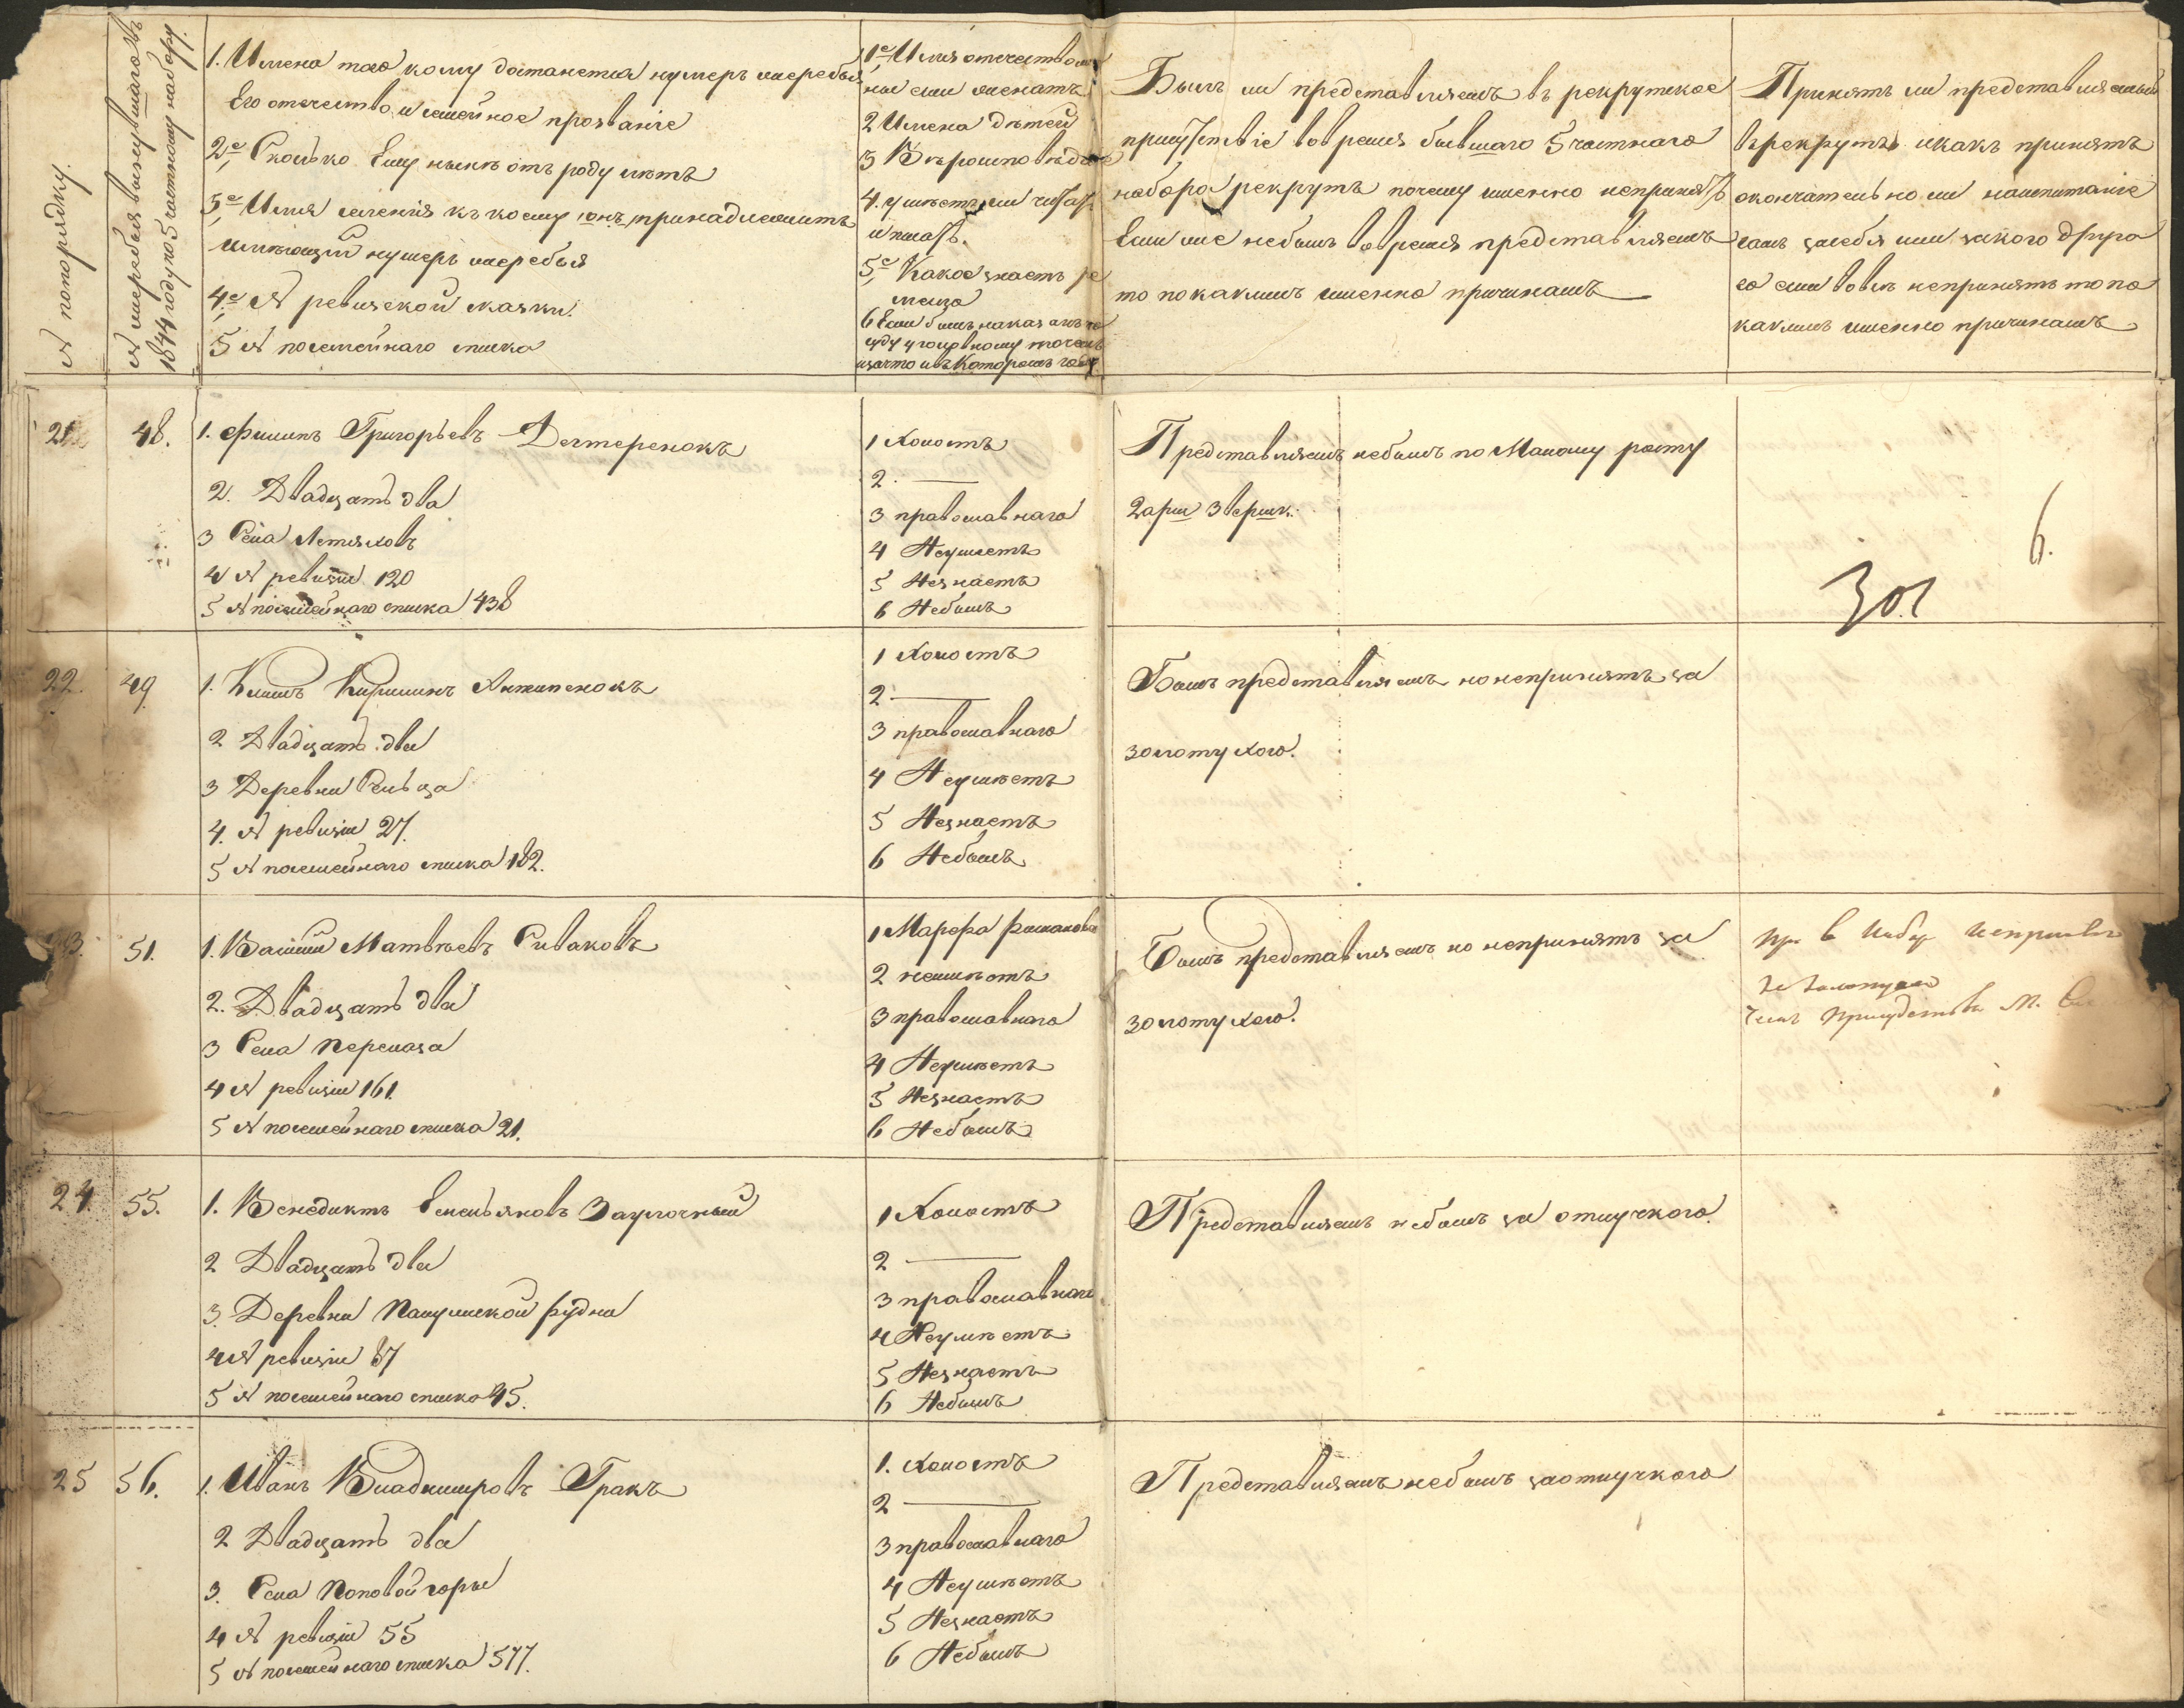 № по порядку.
№ жеребья вынувшаго въ
1844 году по 5 частному набору.
1. Имена того кому достанется нумеръ жеребья
Его отечество, и семейное прозваніе
2е, Сколько Ему нынѣ отъ роду лѣтъ
3е, Имя селенія къ коему онъ принадлежитъ
имѣющій нумеръ жеребья
4е, № ревизской сказки.
5 № посемейнаго списка
1е, Имя отечество
если женатъ
2 Имена дѣтей
3 Вѣроисповѣд
4. умѣетъ ли читать
и писать.
5е, Какое знаетъ ре
месло
6 Если былъ наказанъ по
суду уголовному то
за что и въ Которомъ году
Былъ ли представляемъ въ рекрутское
присутствіе во время бывшаго 5 частнаго
набора рекрутъ почему именно непринятъ
Если же небылъ во время представляемъ
то по какимъ именно причинамъ
Принятъ ли представляемый
въ рекруты и какъ принятъ
окончательно ли на испытаніе
самъ за себя или за кого друго
го если вовсе непринятъ то по
какимъ именно причинамъ
21
48.
1. Филипъ Григорьевъ Дегтеренокъ
2. Двадцать два
3 Села Летяховъ
4 № ревизіи 120
5 № посемейнаго списка 438
1 Холостъ
2. —
3 православнаго
4 Неумѣетъ
5 Незнаетъ
6 Небылъ
Представляемъ небылъ по Малому росту
2 арш 3 вершк.
6.
301
22.
49
1. Климъ Кирилинъ Антипенокъ
2 Двадцать два
3 Деревни Сельца
4. № ревизіи 27.
5 № посемейнаго списка 182.
1 Холостъ
2 —
3 православнаго
4 Неумѣетъ
5 Незнаетъ
6 Небылъ
Былъ представляемъ но непринятъ за
золотухою.
23.
51.
1. Василій Матвѣевъ Сиваковъ
2. Двадцать два
3 Села Перелаза
4 № ревизіи 161.
5 № посемейнаго списка 21.
1 Марфа Романова
2 неимѣетъ
3 православнаго
4 Неумѣетъ
5 Незнаетъ
6 Небылъ
Былъ представляемъ но непринятъ за
золотухою.
За золотухою
Членъ Присудствія М.
24.
55.
1. Венедиктъ Емельяновъ Заулочный
2 Двадцать два
3. Деревни Пашулиской Рудни
4 № ревизіи 87
5 № посемейнаго списка 45.
1 Холостъ
2 —
3 православнаго
4 Неумѣетъ
5 Незнаетъ
6 Небылъ
Представляемъ небылъ за отлучкою.
25
56.
1. Иванъ Владимировъ Гракъ
2 Двадцать два
3. Села Поповой горы
4 № ревизіи 55
5 № посемейнаго списка 577.
1. Холостъ
2 —
3 православнаго
4 Неумѣетъ
5 Незнаетъ
6 Небылъ
Представляемъ небылъ за отлучкою